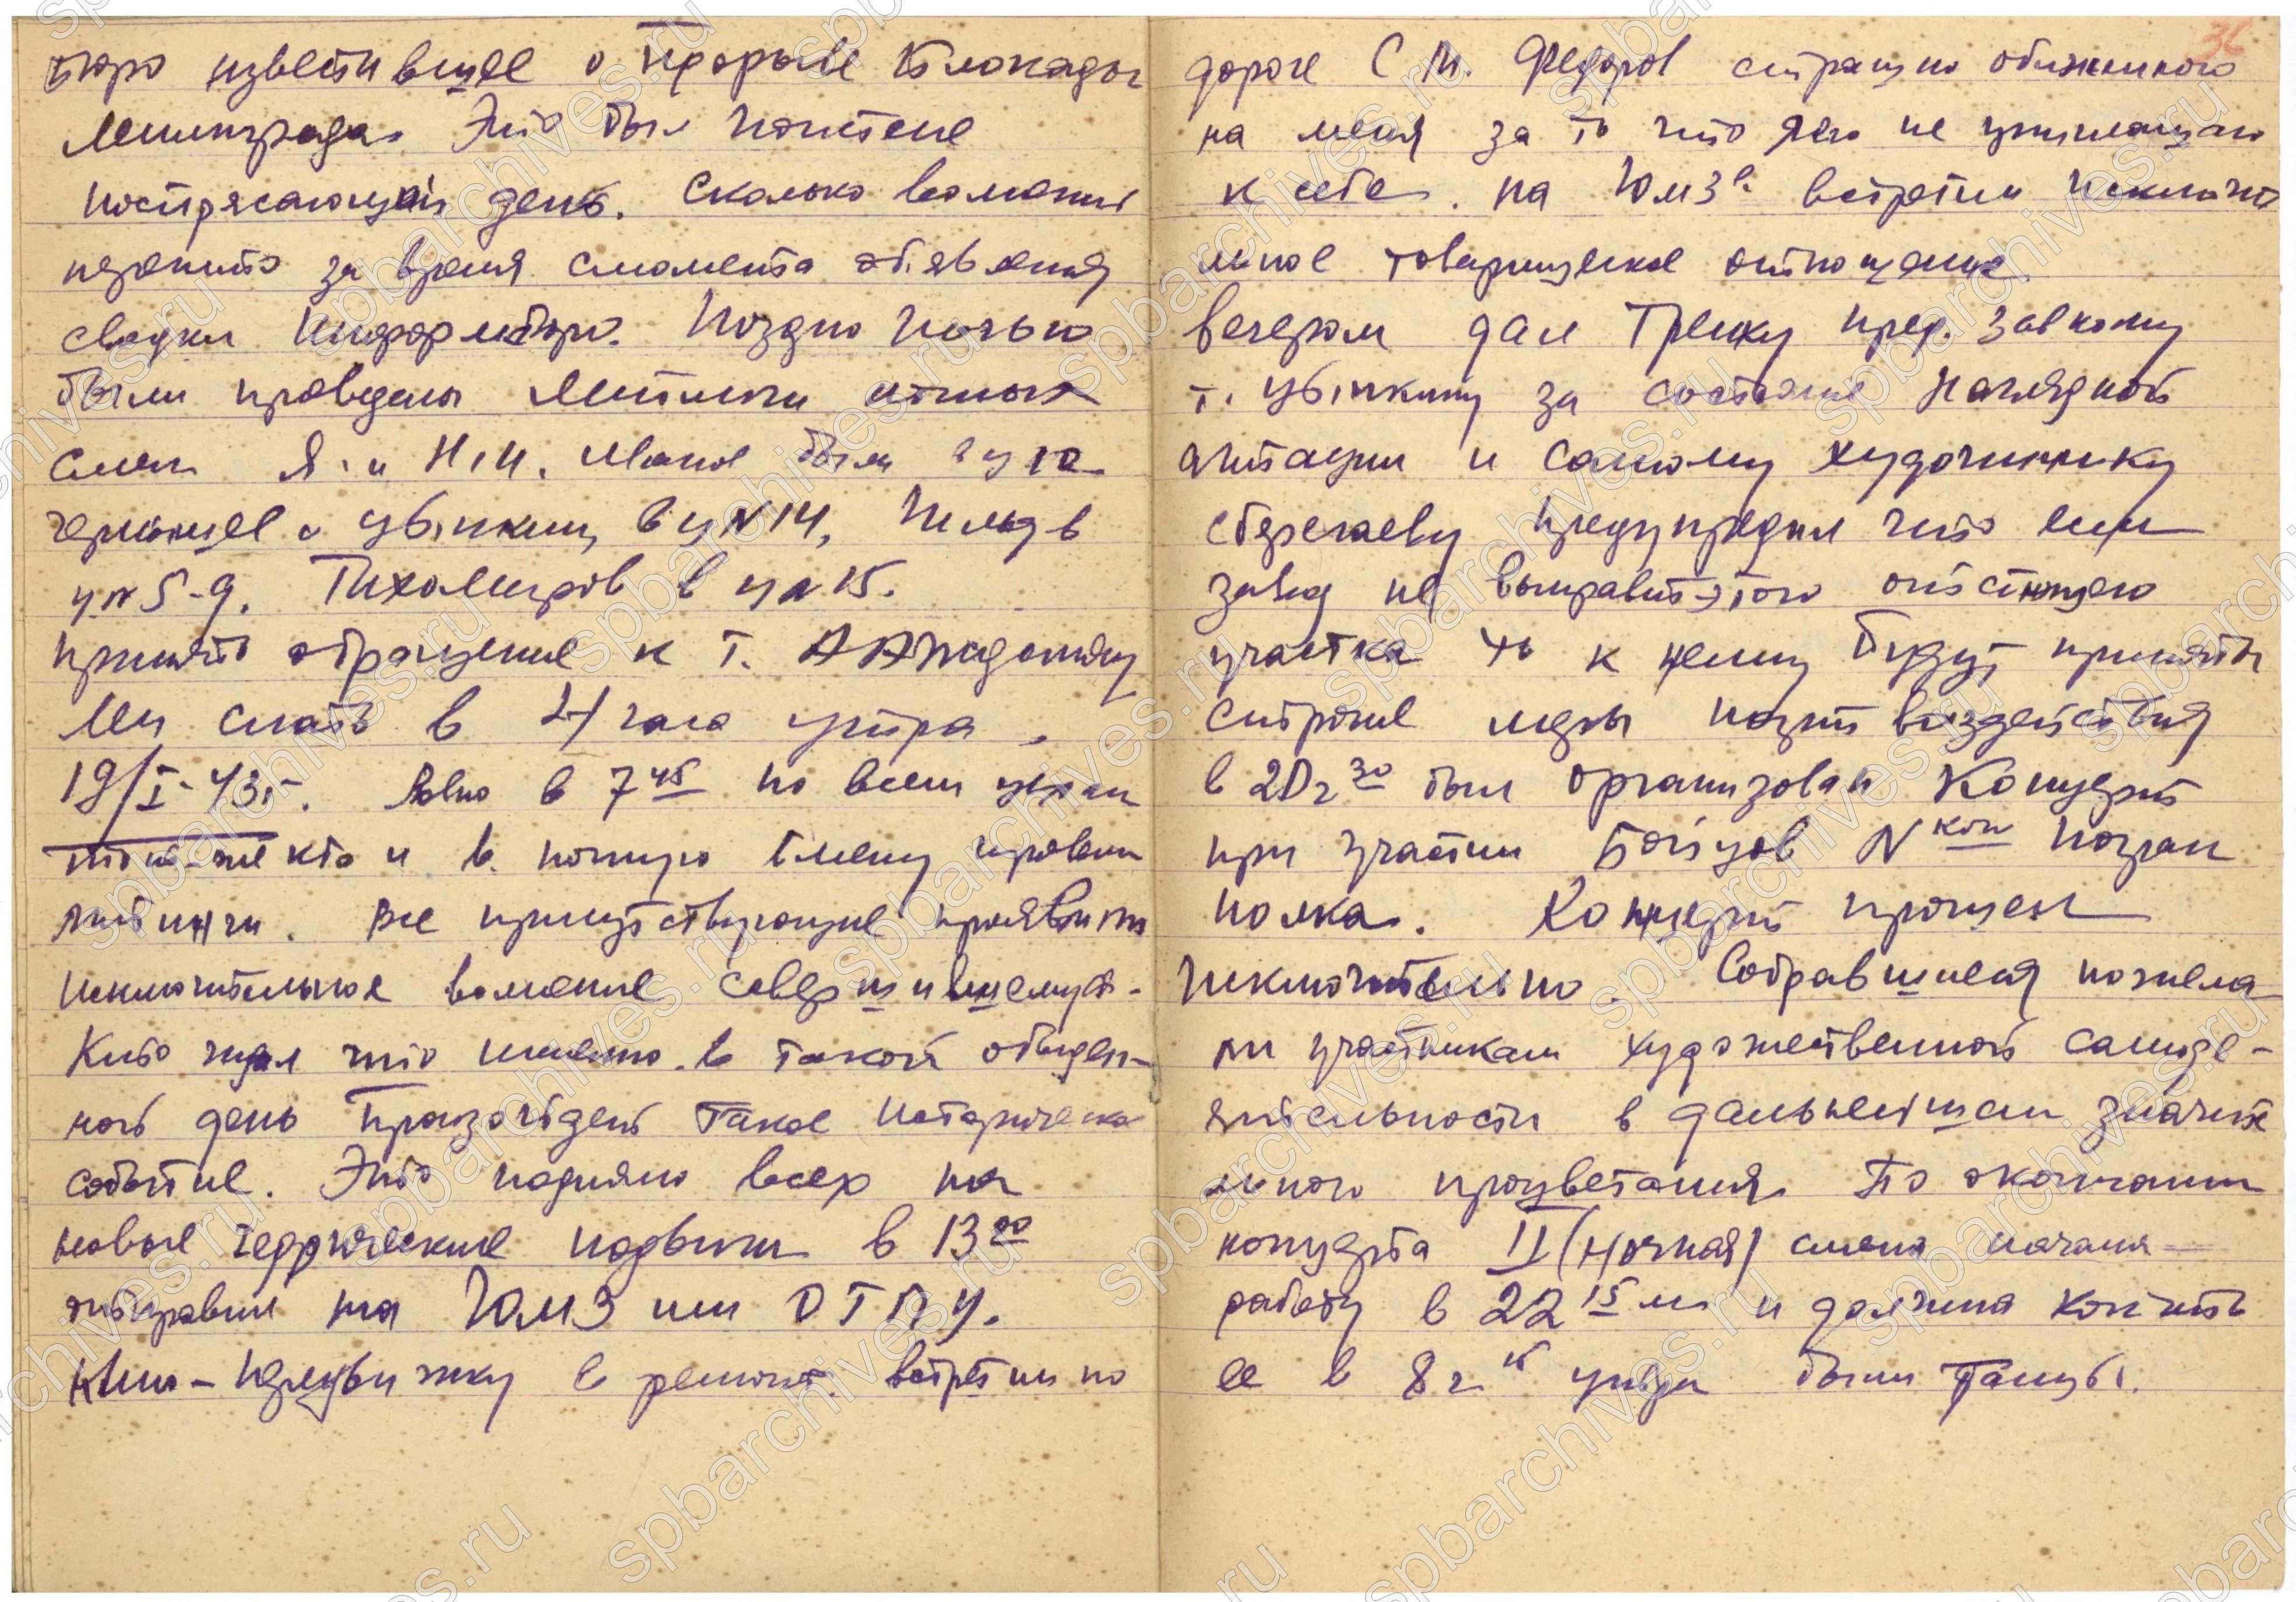 бюро известившее о прорыве блокады
Ленинграда. Это был поистене
постресающий день. Сколько волнений
пережито за время с момента объявления
сводки Информбюро. Поздно ночью
были проведены митинги ночных
смен Я. и Н.И. были
в ц №14,
ц №5-9. Тихомиров в ц №15.
принято обращение к т. А А Жданову
Лег спать в 4 часа утра.
19/I-43г. Ровно в 7 45 по всем цехам
кто и в ночную смену провели
митинги. Все присутствующие проявили
исключительное волнение совершившемуся.
Кто ждал что именно в такой обыден-
ной день произойдет такое историческо
событие. Это подняло всех на
новые героические подвиги в 13 00
отправил на ЮМЗ им ОГПУ.
Кино-передвижку в ремонт. встретил по
36
дороге С М. Федоров страшно обиженного
на меня за то что я его не приглашаю
к себе. на ЮМЗе встретил исключит
льное товарищеское отношение
вечером дал Трепку пред. завкому
т. за состояние наглядной
агитации и самому художнику
предупредил что если
завод не выправит этого отстающего
участка то к нему будут приняты
строгие меры воздействия
в 20 г 30 был организован Концерт
при участии Бойцов N кого
полка. Концерт прошел
исключительно. Собравшиеся пожела-
ли участникам художественной самоде-
ятельности в дальнейшем значите
льного процветания. По окончании
концерта II (ночная) смена начала
работу в 22 15 м и должна кончить
ее в 8 г 15 утра были танцы.